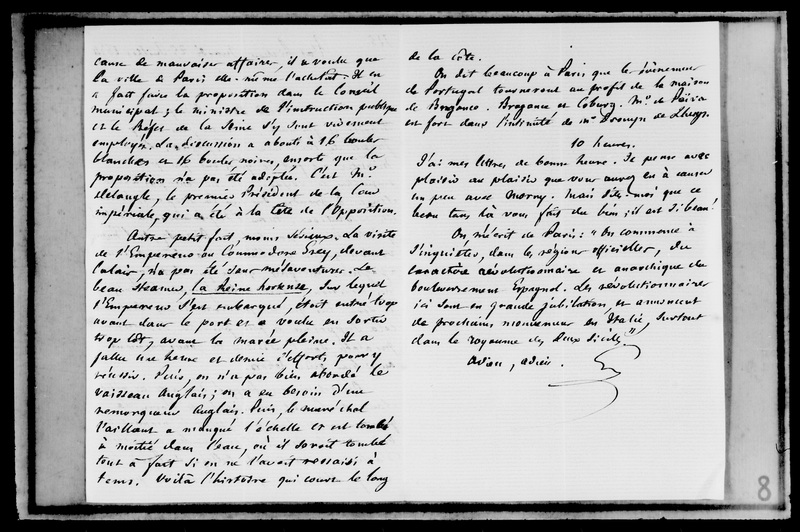 cause de mauvaises affaires, il a voulu que
la ville de Paris elle-même l'achetât. Il en
a fait faire la proposition dans le Conseil
municipal; le ministre de l'instruction publique
et le Préfet de la Seine s'y sont vivement
employés. La discussion a abouti à 16 boules
blanches et 16 boules noires, ensorte que la
proposition n'a pas été adoptée. C'est Mr
Delangle, le premier Président de la Cour
impériale, qui a été à la tête de l'Opposition.
Autre petit fait, moins sérieux. La visite
de l'Empereur au Commodore Grey, devant
Calais, n'a pas été sans mésaventures. Le
beau steamer, la Reine hortense, sur lequel
l'Empereur s'est embarqué, étoit entré trop
avant dans le port et a voulu en sortir
trop tôt, avant la marée pleine. Il a
fallu une heure et demie d'efforts pour y
réussir. Puis, on n'a pas bien abordé le
vaisseau Anglais; on a eu besoin d'un
remorqueur Anglais. Puis, le maréchal
Vaillant a manqué l'échelle et est tombé
à moitié dans l'eau, où il seroit tombé
tout à fait si on ne l'avoit ressaisi à
tems. Voilà l'histoire qui court le long
de la côte.
On dit beaucoup à Paris que les évènemens
de Portugal tourneront au profit de la maison
de Bragance. Bragance et Cobourg. Mr de Païva
est fort dans l'intimité de Mr Drouyn de Lhuys.
10 heures.
J'ai mes lettres de bonne heure. Je pense avec
plaisir au plaisir que vous aurez eu à causer
un peu avec Morny. Mais dites-moi que ce
beau tems là vous fait du bien; il est si beau!
On m'écrit de Paris: "On commence à
s'inquiéter, dans les régions officielles, du
caractère révolutionnaire et anarchique du
bouleversement Espagnol. Les révolutionnaires
ici sont en grande jubilation, et annoncent
de prochains mouvemens en Italie, surtout
dans le royaume des Deux Siciles."
Adieu, adieu.
8